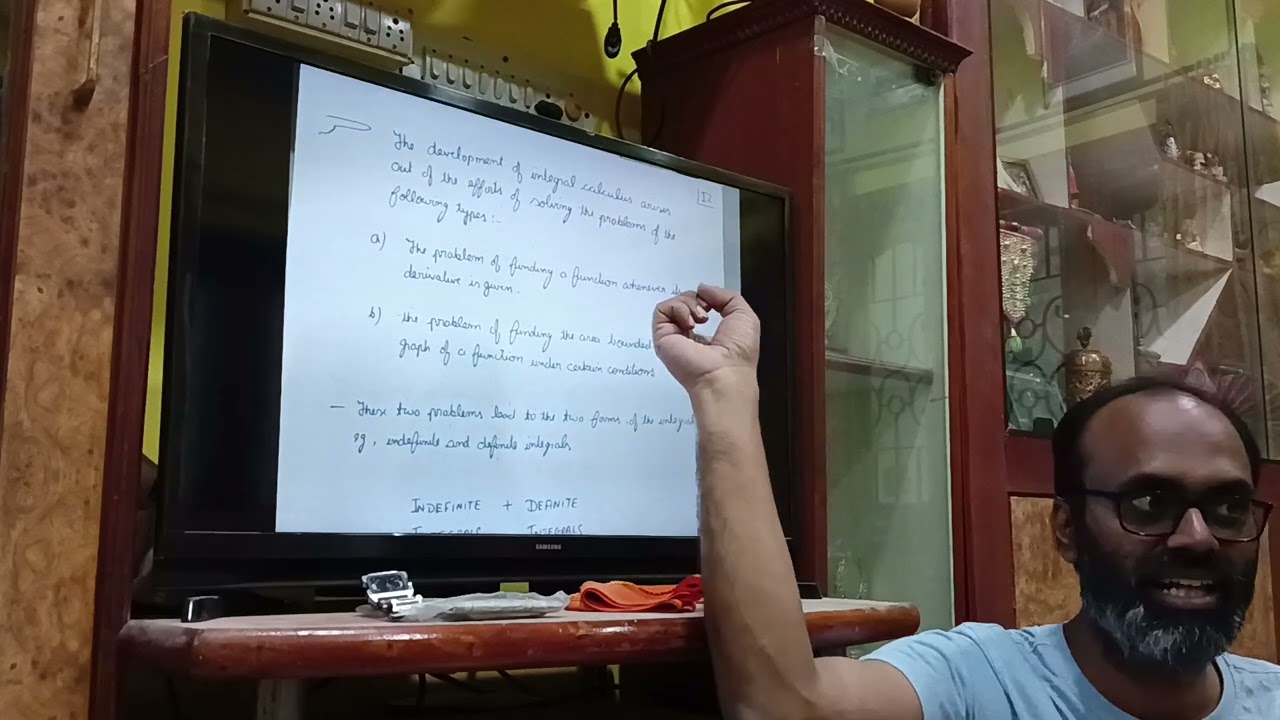 The development of integral calculus arises
out of the efforts of solving the problems of the
following types:-
12
a) The problem of finding a function whenever its
derivative is given.
b) the problem of finding the area bounded
graph of a function under certain conditions
- These two problems lead to the two forms of the integral
eg, indefinite and definite integrals
INDEFINITE + DEFINITE
INTEGRALS INTEGRALS
SAMSUNG